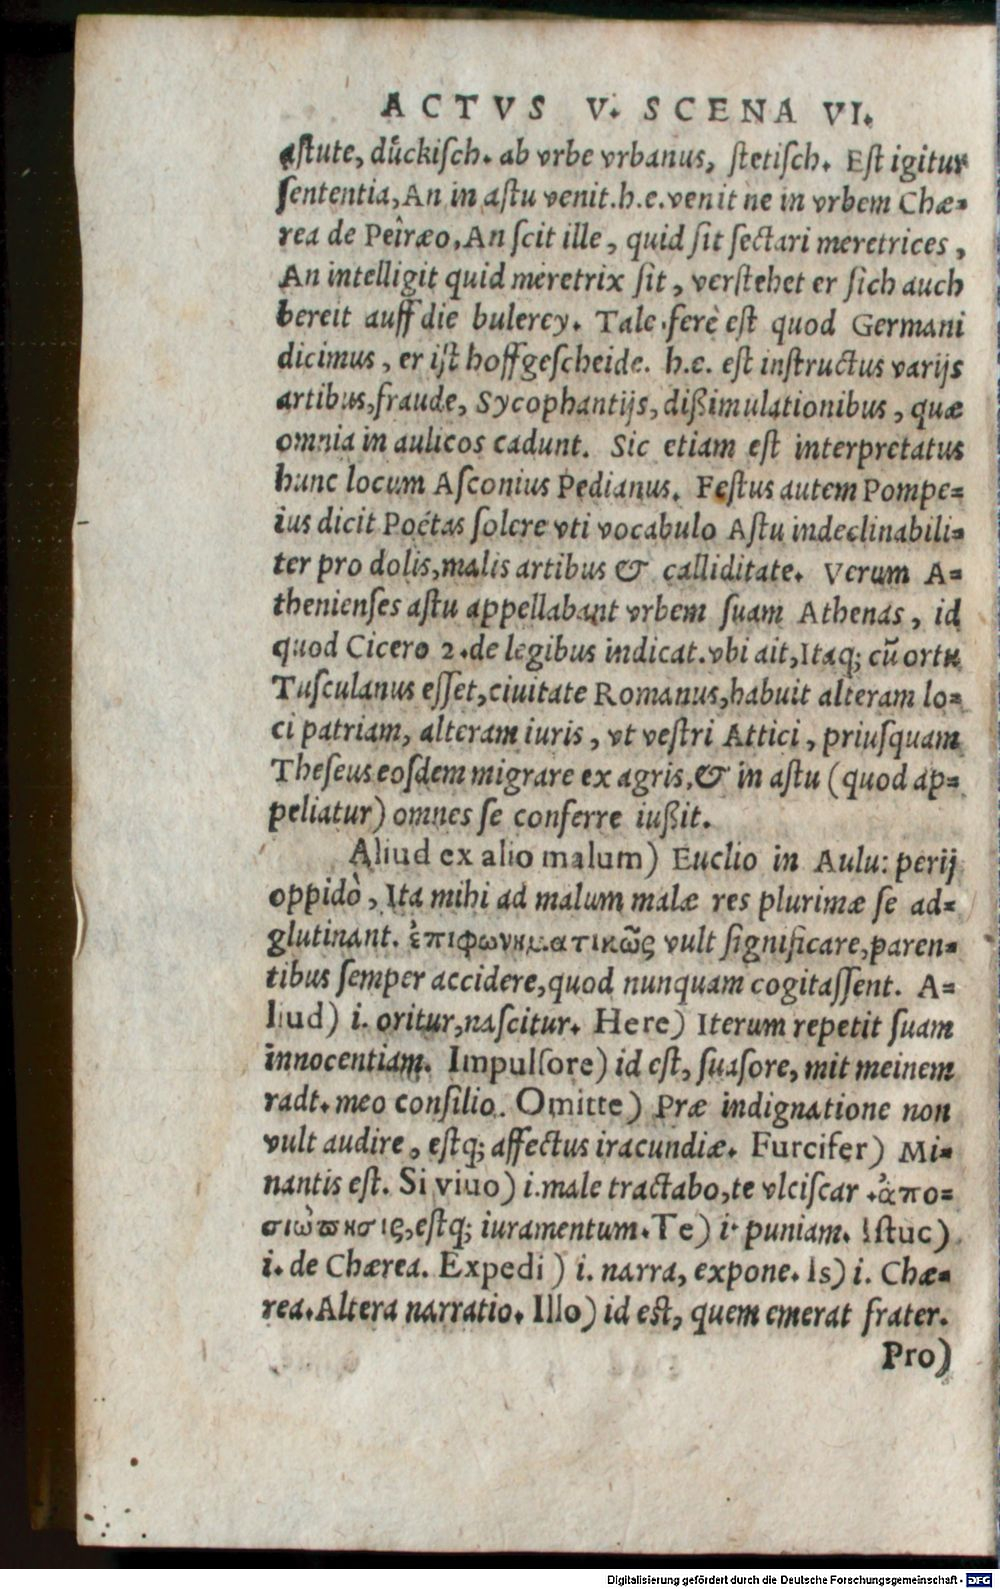 ACTVS V. SCENA VI.
astute, dückisch. ab vrbe vrbanus, stetisch. Est igitur
sententia, An in astu venit. h.e. venit ne in vrbem Chæ=
rea de Peiræo, An scit ille, quid sit sectari meretrices,
An intelligit quid meretrix sit, verstehet er sich auch
bereit auff die bulerey. Tale ferè est quod Germani
dicimus, er ist hoffgescheide. h.e. est instructus varijs
artibus, fraude, Sycophantijs, dißimulationibus, quæ
omnia in aulicos cadunt. Sic etiam est interpretatus
hunc locum Asconius Pedianus. Festus autem Pompe=
ius dicit Poëtas solere vti vocabulo Astu indeclinabili=
ter pro dolis, malis artibus & calliditate. Verum A=
thenienses astu appellabant vrbem suam Athenas, id
quod Cicero 2. de legibus indicat. vbi ait, Itaq; cũ ortu
Tusculanus esset, ciuitate Romanus, habuit alteram lo=
ci patriam, alteram iuris, vt vestri Attici, priusquam
Theseus eosdem migrare ex agris, & in astu (quod ap=
peliatur) omnes se conferre iußit.
Aliud ex alio malum) Euclio in Aulu: perij
oppidò, Ita mihi ad malum malæ res plurimæ se ad=
glutinant. ἐπιφωνηματικῶς vult significare, paren=
tibus semper accidere, quod nunquam cogitassent. A=
liud) i. oritur, nascitur. Here) Iterum repetit suam
innocentiam. Impulsore) id est, suasore, mit meinem
radt. meo consilio. Omitte) Præ indignatione non
vult audire, estq; affectus iracundiæ. Furcifer) Mi=
nantis est. Si viuo) i. male tractabo, te vlciscar. ἀπο=
σιώπησις, estq; iuramentum. Te) i. puniam. Istuc)
i. de Chærea. Expedi) i. narra, expone. Is) i. Chæ=
rea. Altera narratio. Illo) id est, quem emerat frater.
Pro)
Digitalisierung gefördert durch die Deutsche Forschungsgemeinschaft - DFG